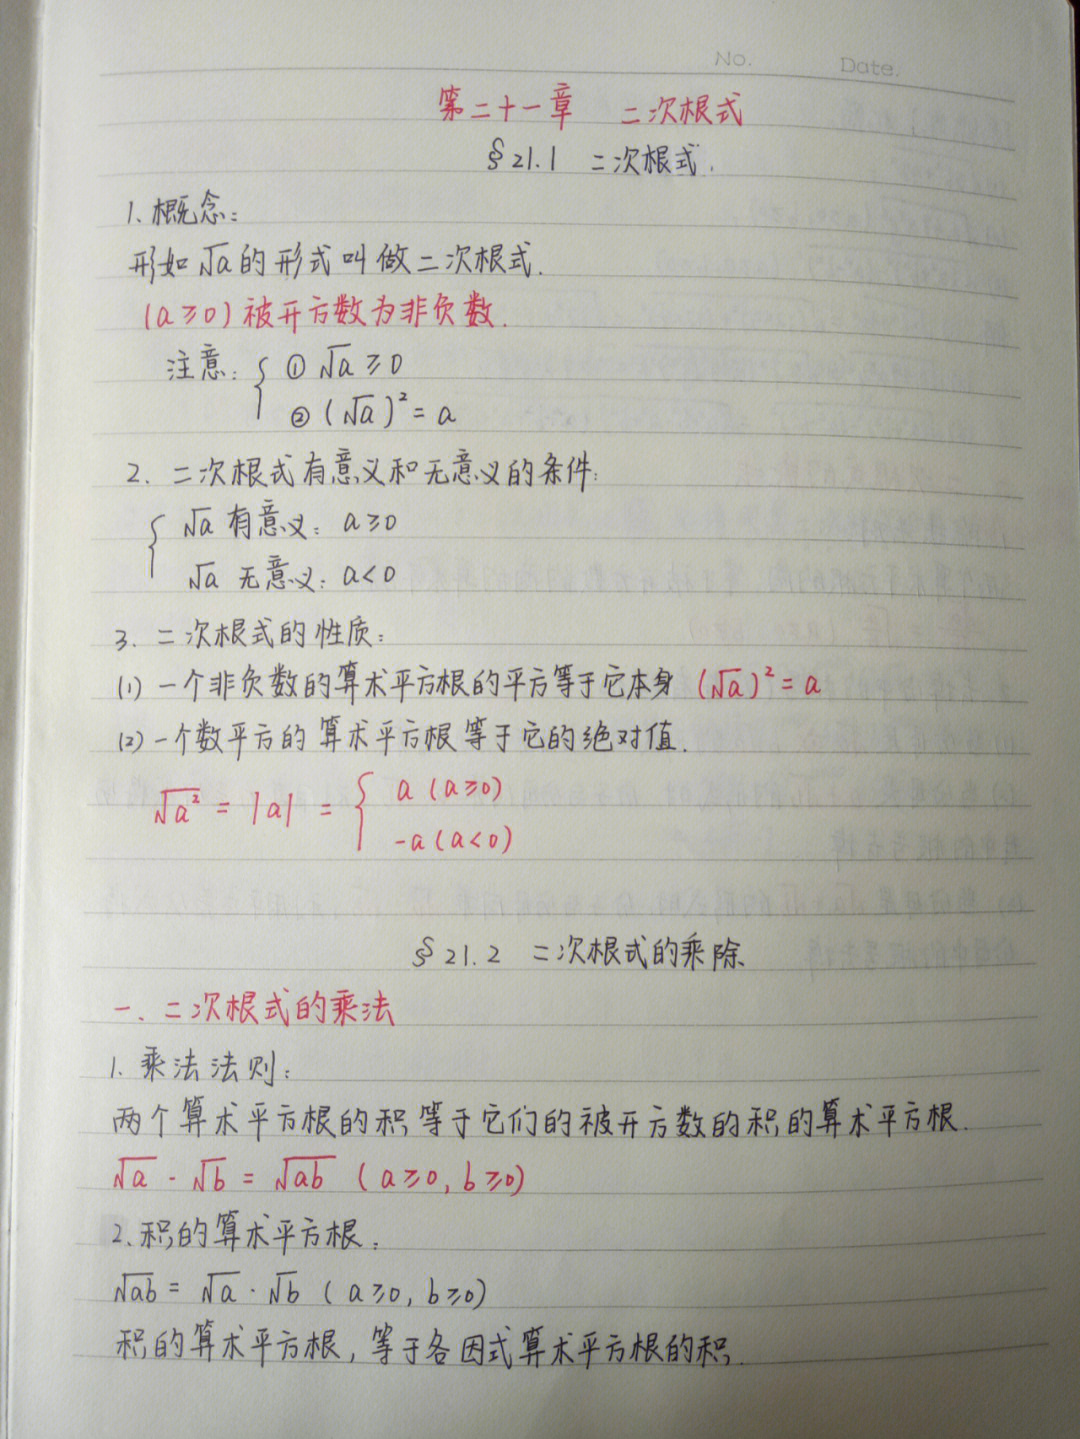 No. Date.
第二十一章 二次根式
§21.1 二次根式.
1. 概念:
形如√a的形式叫做二次根式.
(a≥0)被开方数为非负数.
注意: { ① √a≥0
② (√a)²=a
2. 二次根式有意义和无意义的条件:
{ √a 有意义: a≥0
√a 无意义: a<0
3. 二次根式的性质:
(1) 一个非负数的算术平方根的平方等于它本身 (√a)²=a
(2) 一个数平方的算术平方根等于它的绝对值.
√a² = |a| = { a (a≥0)
-a (a<0)
§21.2 二次根式的乘除
一、二次根式的乘法
1. 乘法法则:
两个算术平方根的积等于它们的被开方数的积的算术平方根.
√a · √b = √ab (a≥0, b≥0)
2. 积的算术平方根:
√ab = √a · √b (a≥0, b≥0)
积的算术平方根, 等于各因式算术平方根的积.